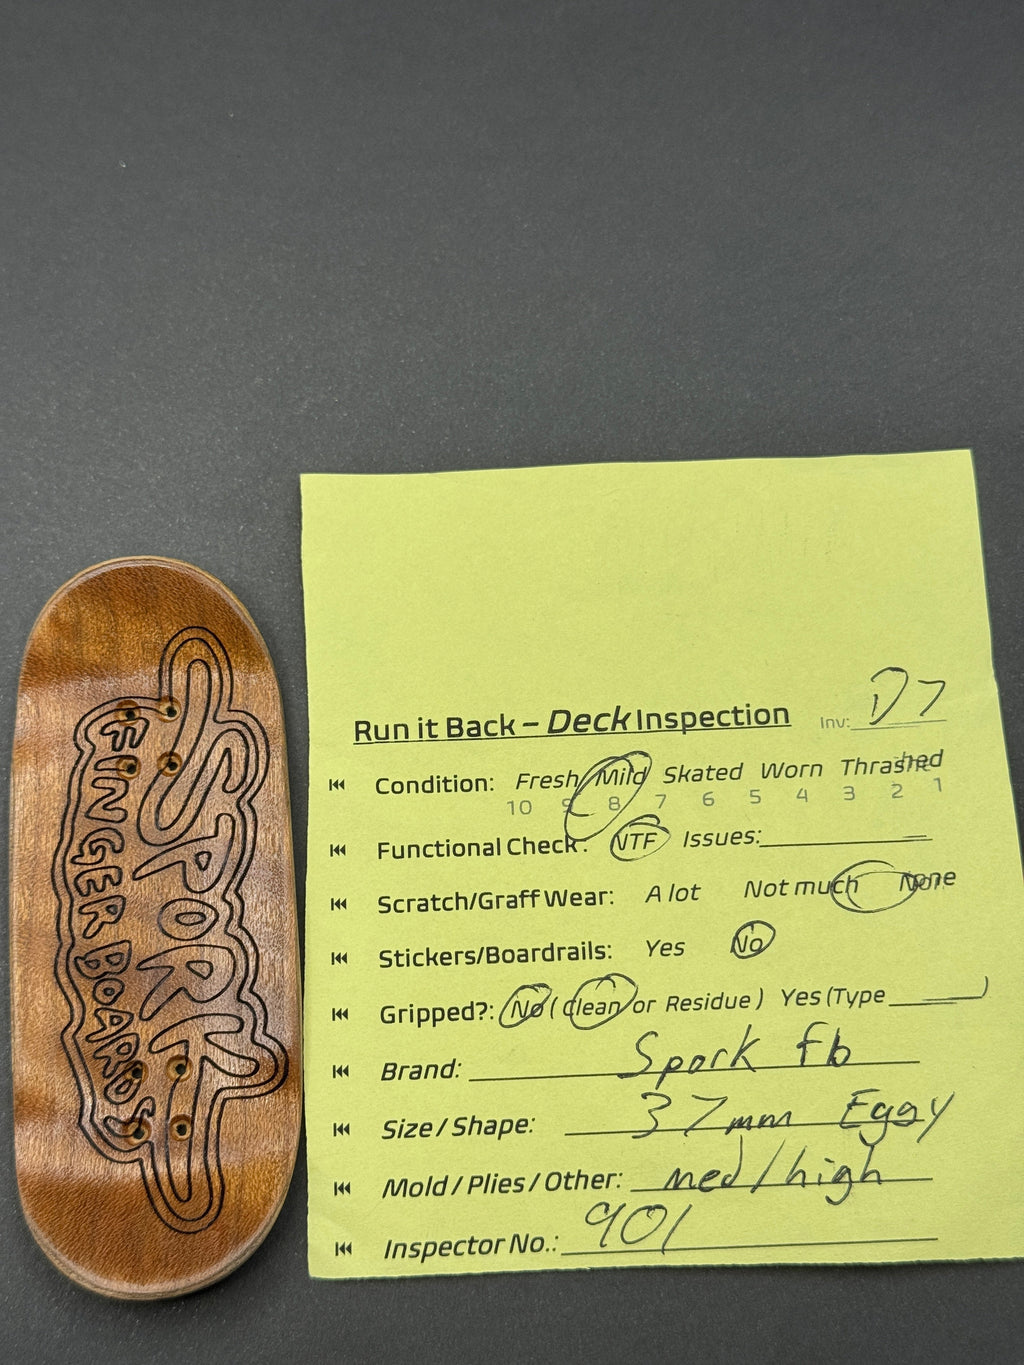 SPORK
FINGER BOARDS
Run it Back – Deck Inspection Inv: D7
⏮ Condition: Fresh Mild Skated Worn Thrashed
10 9 8 7 6 5 4 3 2 1
⏮ Functional Check: NTF Issues:
⏮ Scratch/Graff Wear: A lot Not much None
⏮ Stickers/Boardrails: Yes No
⏮ Gripped?: No ( Clean or Residue ) Yes (Type )
⏮ Brand: Spork fb
⏮ Size / Shape: 37mm Eggy
⏮ Mold / Plies / Other: med/high
⏮ Inspector No.: 901